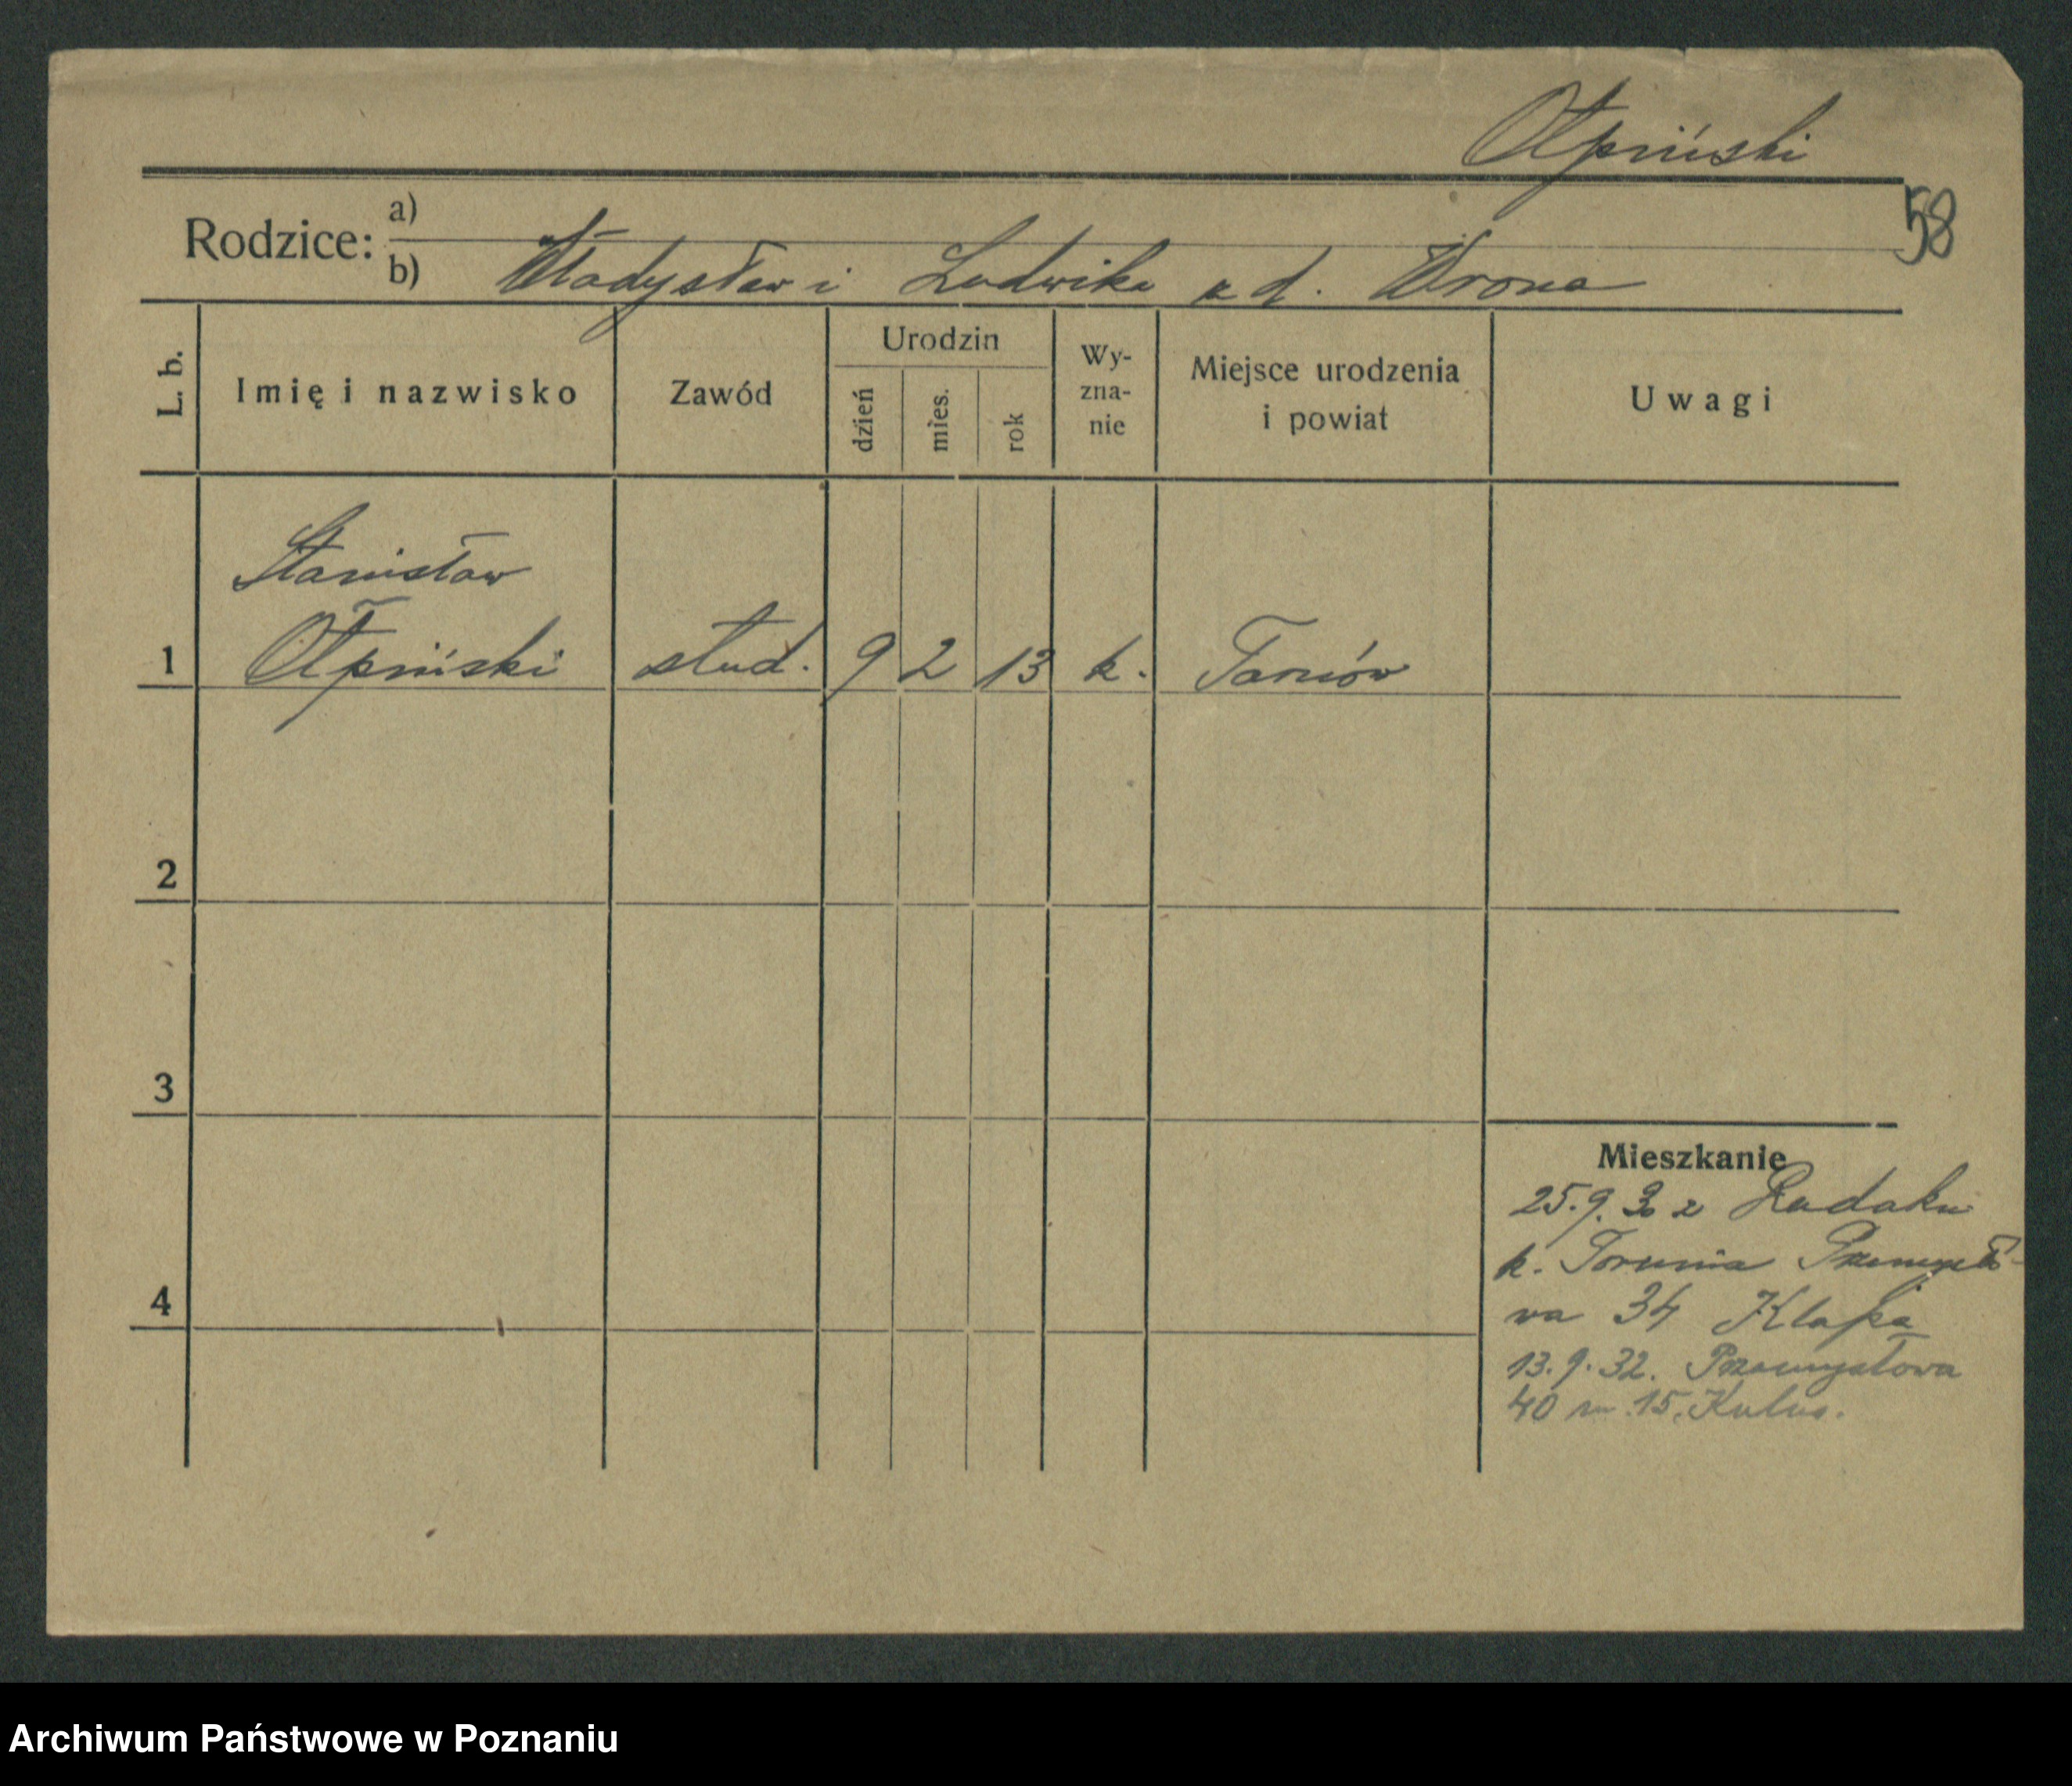 Ołpiński
58
Rodzice: a)
b) Władysław i Ludwika z d. Wrona
L. b. Imię i nazwisko Zawód Urodzin dzień mies. rok Wy-zna-nie Miejsce urodzenia i powiat Uwagi
Stanisław
1 Ołpiński stud. 9 2 13 k. Tarnów
2
3
4
Mieszkanie
25.9.30 z Rudaku
k. Torunia Przemysło-
wa 34 Klapa
13.9.32. Przemysłowa
40 m. 15. Kulus.
Archiwum Państwowe w Poznaniu